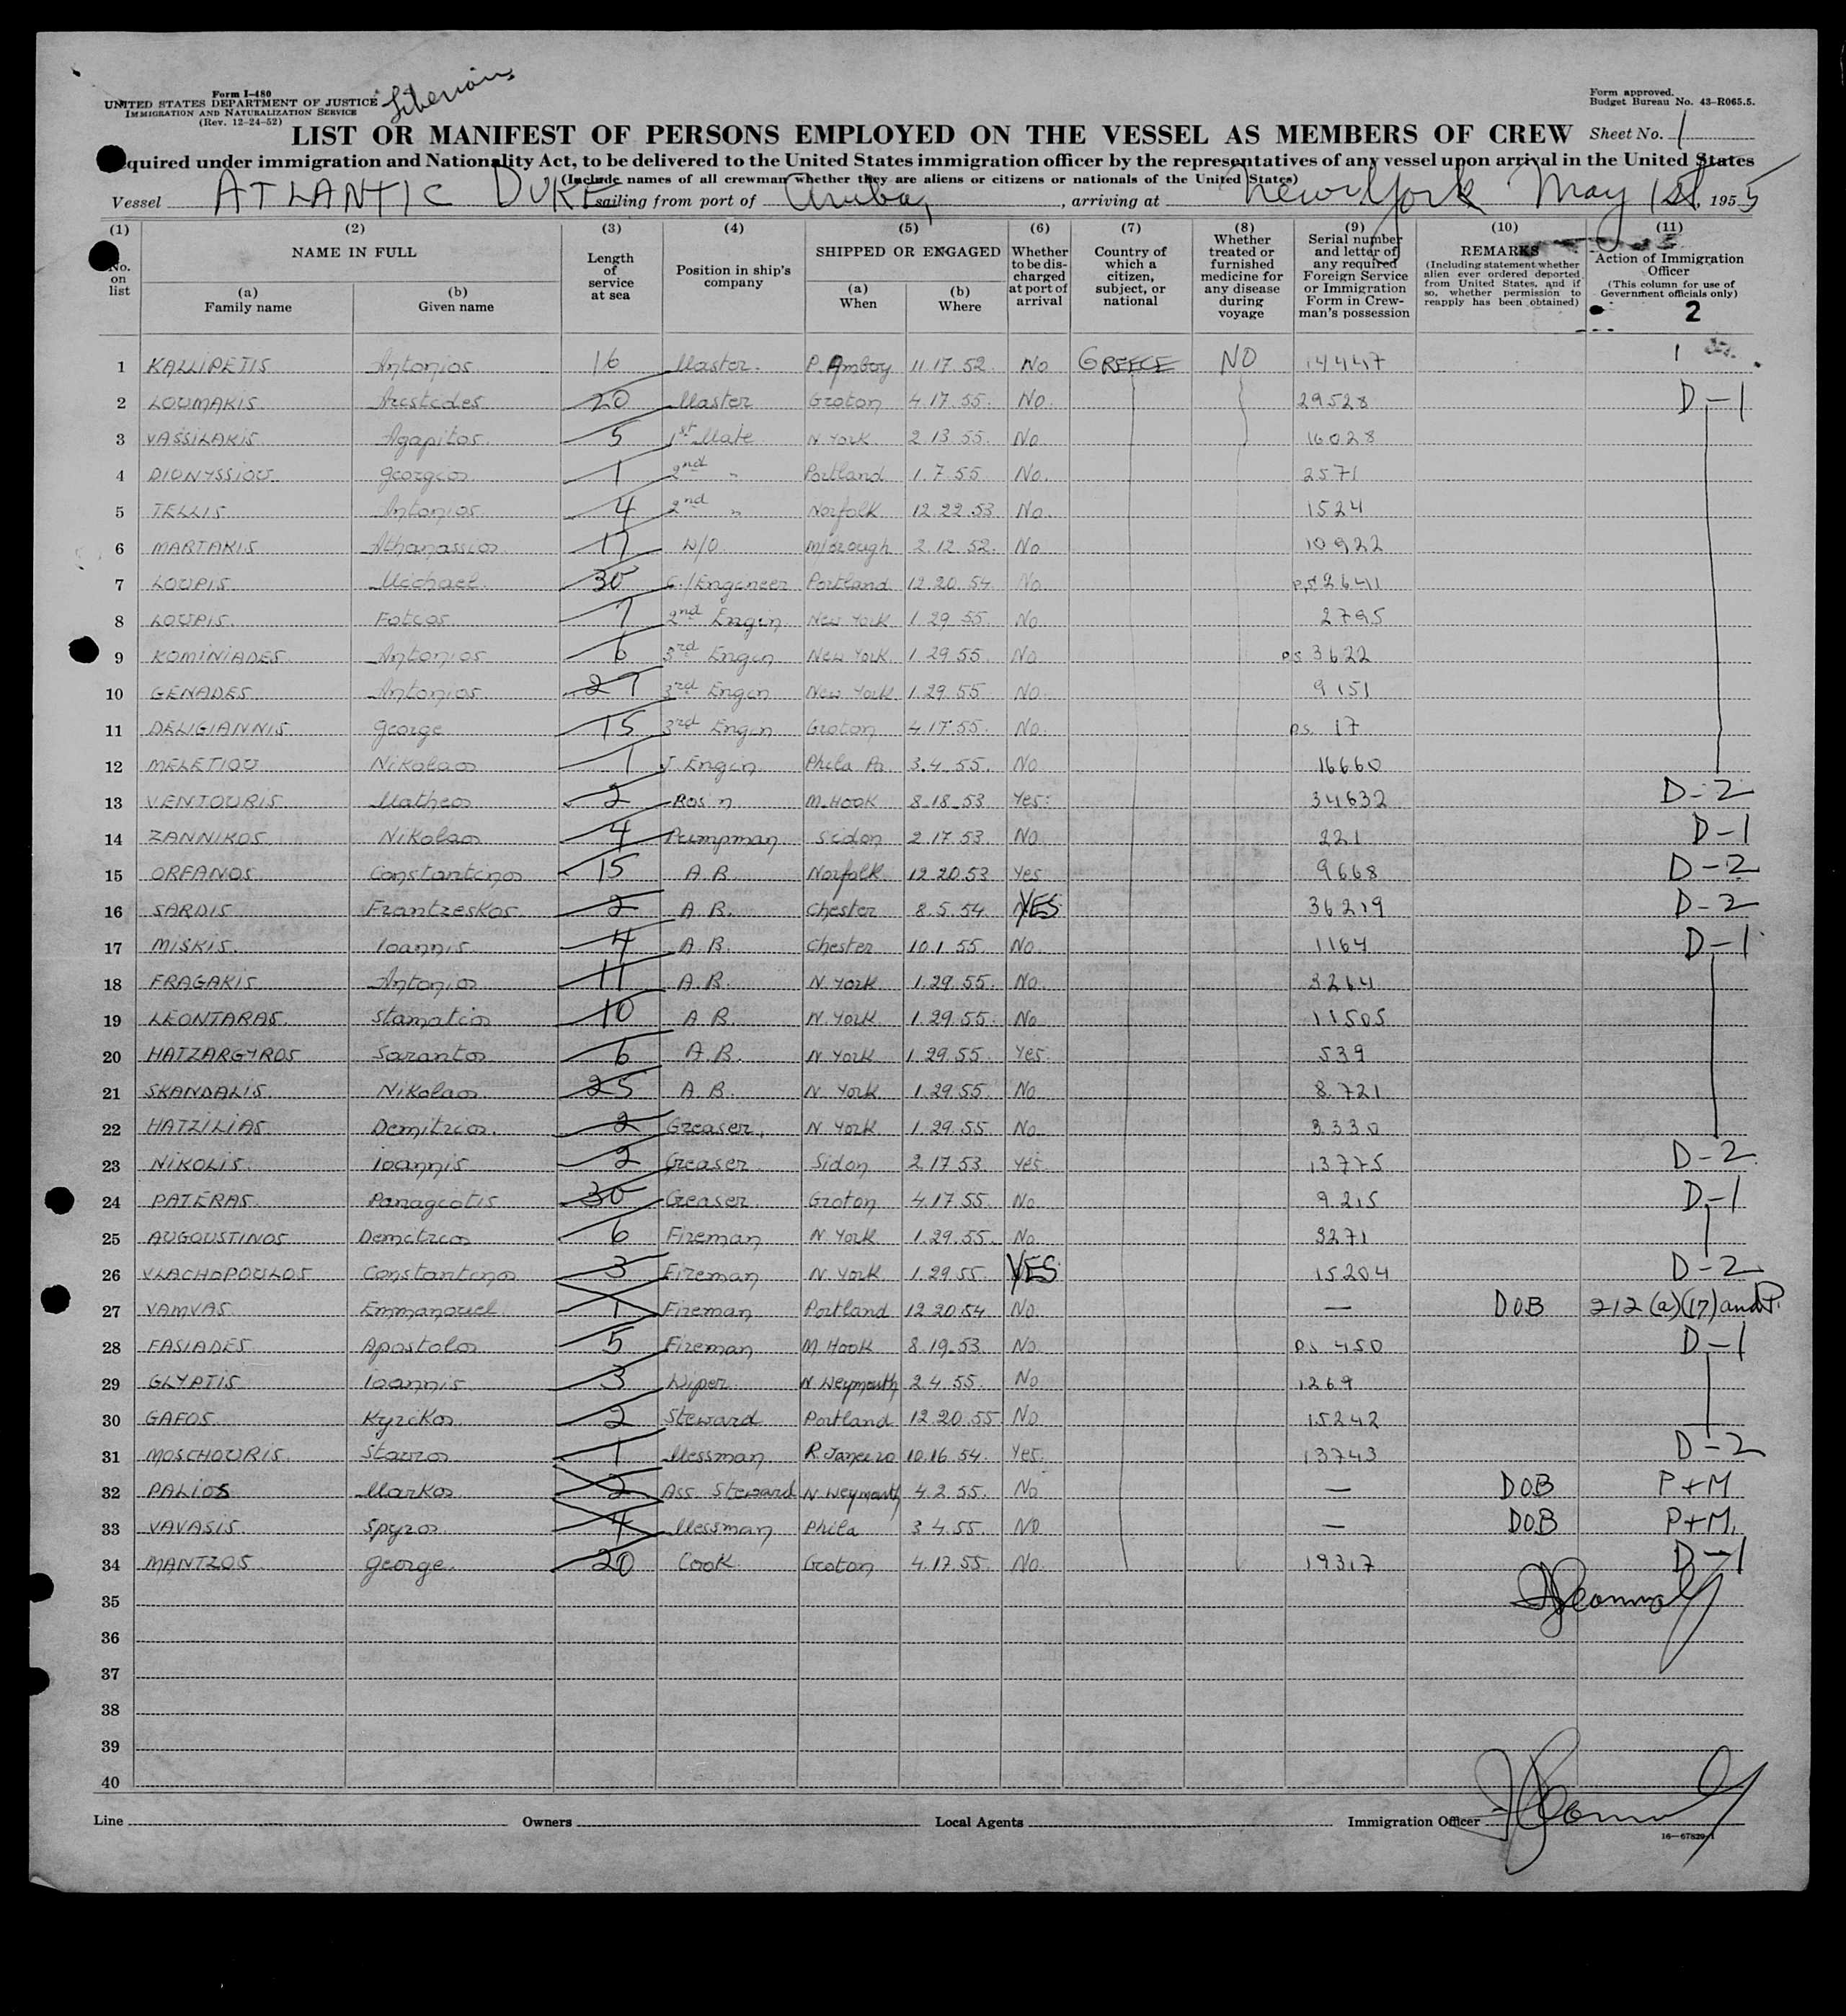 Form I-480
UNITED STATES DEPARTMENT OF JUSTICE
IMMIGRATION AND NATURALIZATION SERVICE
(Rev. 12-24-52)
Liberian
Form approved.
Budget Bureau No. 43-R065.5.
LIST OR MANIFEST OF PERSONS EMPLOYED ON THE VESSEL AS MEMBERS OF CREW Sheet No. 1
quired under immigration and Nationality Act, to be delivered to the United States immigration officer by the representatives of any vessel upon arrival in the United States
(Include names of all crewman whether they are aliens or citizens or nationals of the United States)
Vessel ATLANTIC DUKE sailing from port of Aruba, arriving at New York May 1st, 1955
(1) No. on list
(2) NAME IN FULL (a) Family name (b) Given name
(3) Length of service at sea
(4) Position in ship's company
(5) SHIPPED OR ENGAGED (a) When (b) Where
(6) Whether to be discharged at port of arrival
(7) Country of which a citizen, subject, or national
(8) Whether treated or furnished medicine for any disease during voyage
(9) Serial number and letter of any required Foreign Service or Immigration Form in Crewman's possession
(10) REMARKS (Including statement whether alien ever ordered deported from United States, and if so, whether permission to reapply has been obtained)
(11) Action of Immigration Officer (This column for use of Government officials only)
2
1 KALLIPETIS Antonios 16 Master P. Amboy 11.17.52 No GREECE NO 14447 1
2 LOUMAKIS Aristides 20 Master Groton 4.17.55 No 29528 D-1
3 VASSILAKIS Agapitos 5 1st Mate N. York 2.13.55 No 16028
4 DIONYSSIOU Georgios 1 2nd " Portland 1.7.55 No 2571
5 TELLIS Antonios 4 2nd " Norfolk 12.22.53 No 1524
6 MARTAKIS Athanassios 17 W/O M/orough 2.12.52 No 10922
7 LOUPIS Michael 30 C./Engineer Portland 12.20.54 No ps 2641
8 LOUPIS Foteos 7 2nd Engin New York 1.29.55 No 2795
9 KOMINIADES Antonios 6 3rd Engin New York 1.29.55 No ps 3622
10 GENADES Antonios 27 3rd Engin New York 1.29.55 No 9151
11 DELIGIANNIS George 15 3rd Engin Groton 4.17.55 No ps. 17
12 MELETIOU Nikolaos 1 J. Engin Phila Pa. 3.4.55 No 16660
13 VENTOURIS Matheos 2 Bos'n M. Hook 8.18.53 Yes 34632 D-2
14 ZANNIKOS Nikolaos 4 Pumpman Sidon 2.17.53 No 221 D-1
15 ORFANOS Constantinos 15 A.B. Norfolk 12.20.53 Yes 9668 D-2
16 SARDIS Frantzeskos 2 A.B. Chester 8.5.54 YES 36219 D-2
17 MISKIS Ioannis 4 A.B. Chester 10.1.55 No 1164 D-1
18 FRAGAKIS Antonios 11 A.B. N. York 1.29.55 No 3264
19 LEONTARAS Stamatios 10 A.B. N. York 1.29.55 No 11505
20 HATZARGYROS Sarantos 6 A.B. N. York 1.29.55 Yes 539
21 SKANDALIS Nikolaos 25 A.B. N. York 1.29.55 No 8721
22 HATZILIAS Demitrios 2 Greaser N. York 1.29.55 No 3330
23 NIKOLIS Ioannis 2 Greaser Sidon 2.17.53 Yes 13775 D-2
24 PATERAS Panagiotis 30 Greaser Groton 4.17.55 No 9215 D-1
25 AUGOUSTINOS Demitrios 6 Fireman N. York 1.29.55 No 3271
26 VLACHOPOULOS Constantinos 3 Fireman N. York 1.29.55 YES 15204 D-2
27 VAMVAS Emmanouel 1 Fireman Portland 12.20.54 No — DOB 212(a)(17) and P.
28 FASIADES Apostolos 5 Fireman M. Hook 8.19.53 No ps 450 D-1
29 GLYPTIS Ioannis 3 Wiper N. Weymouth 2.4.55 No 1269
30 GAFOS Kyrikos 2 Steward Portland 12.20.55 No 15242
31 MOSCHOURIS Stavros 1 Messman R. Janeiro 10.16.54 Yes 13743 D-2
32 PALIOS Markos 2 Ass. Steward N. Weymouth 4.2.55 No — DOB P+M
33 VAVASIS Spyros 4 Messman Phila 3.4.55 NO — DOB P+M.
34 MANTZOS George 20 Cook Groton 4.17.55 No 19317 D-1
35
36
37
38
39
40
Line Owners Local Agents Immigration Officer
16—67829-1